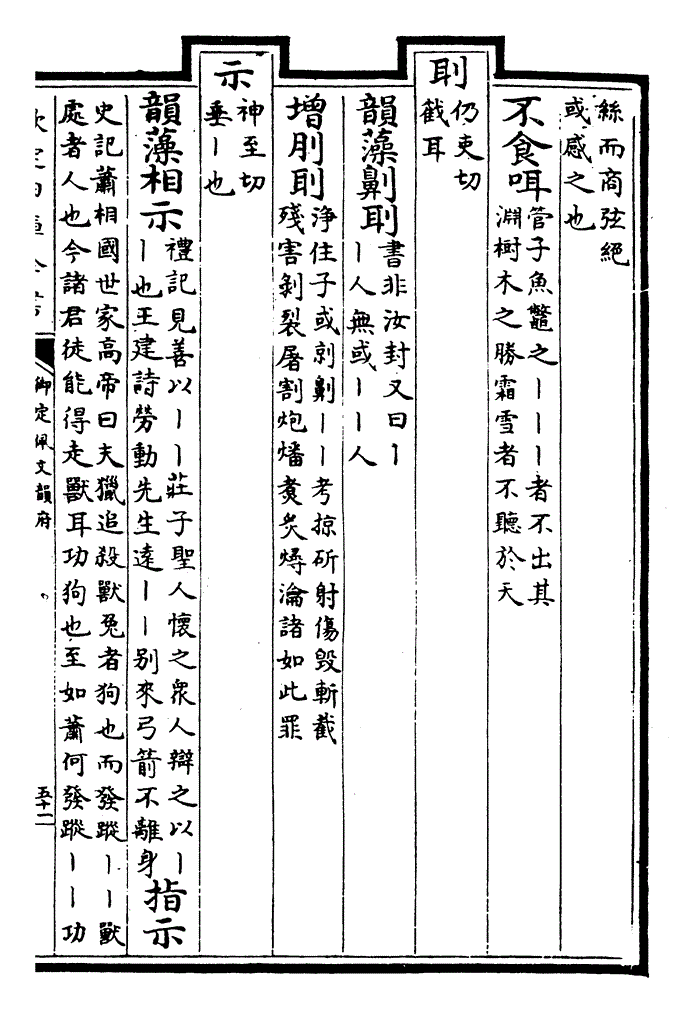 絲而商弦絕
或感之也
不食咡
管子魚鼈之丨丨丨者不出其
淵樹木之勝霜雪者不聽於天
刵
仍吏切
截耳
韻藻劓刵
書非汝封又曰丨
丨人無或丨丨人
增刖刵
淨住子或剠劓丨丨考掠斫射傷毁斬截
殘害剝裂屠割炮燔煑炙燖瀹諸如此罪
示
神至切
垂丨也
韻藻相示
禮記見善以丨丨莊子聖人懷之衆人辯之以丨
丨也王建詩勞動先生遠丨丨别來弓箭不離身
指示
史記蕭相國世家高帝曰夫獵追殺獸兔者狗也而發蹤丨丨獸
處者人也今諸君徒能得走獸耳功狗也至如蕭何發蹤丨丨功
御定佩文韻府
五十二